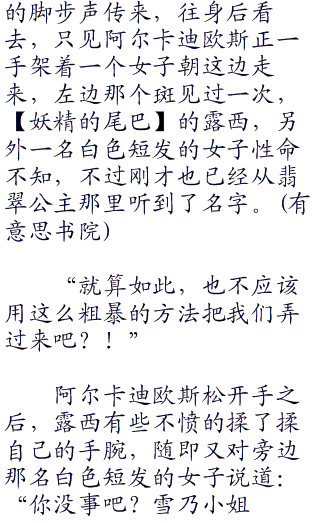 的脚步声传来，往身后看
去，只见阿尔卡迪欧斯正一
手架着一个女子朝这边走
来，左边那个斑见过一次，
【妖精的尾巴】的露西，另
外一名白色短发的女子性命
不知，不过刚才也已经从翡
翠公主那里听到了名字。(有
意思书院)
“就算如此，也不应该
用这么粗暴的方法把我们弄
过来吧？！”
阿尔卡迪欧斯松开手之
后，露西有些不愤的揉了揉
自己的手腕，随即又对旁边
那名白色短发的女子说道：
“你没事吧？雪乃小姐